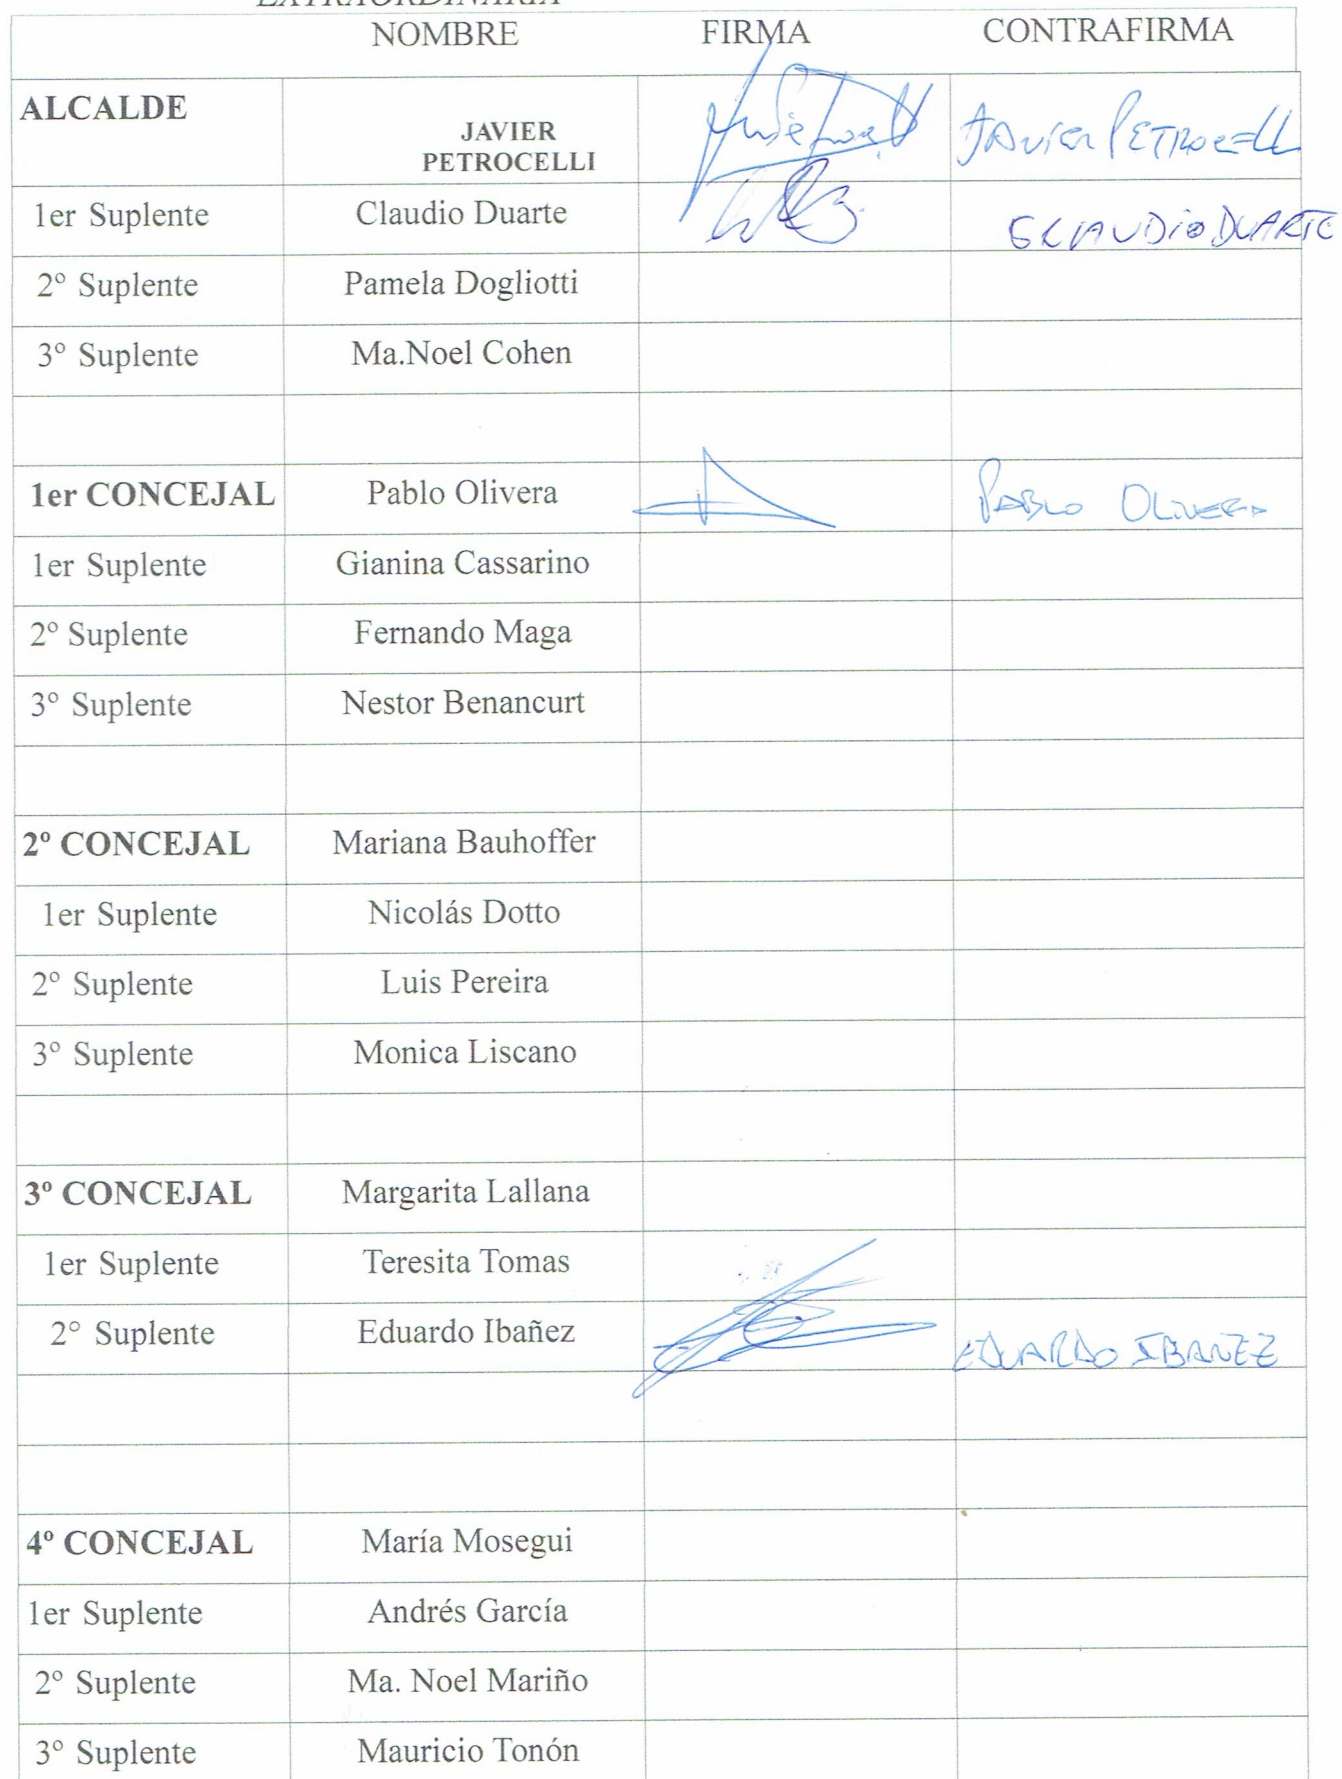 EXTRAORDINARIA
NOMBRE FIRMA CONTRAFIRMA
ALCALDE JAVIER PETROCELLI Javier PETROCELLI
1er Suplente Claudio Duarte CLAUDIO DUARTE
2º Suplente Pamela Dogliotti
3º Suplente Ma.Noel Cohen
1er CONCEJAL Pablo Olivera PABLO OLIVERA
1er Suplente Gianina Cassarino
2º Suplente Fernando Maga
3º Suplente Nestor Benancurt
2º CONCEJAL Mariana Bauhoffer
1er Suplente Nicolás Dotto
2º Suplente Luis Pereira
3º Suplente Monica Liscano
3º CONCEJAL Margarita Lallana
1er Suplente Teresita Tomas
2° Suplente Eduardo Ibañez EDUARDO IBANEZ
4º CONCEJAL María Mosegui
1er Suplente Andrés García
2º Suplente Ma. Noel Mariño
3º Suplente Mauricio Tonón